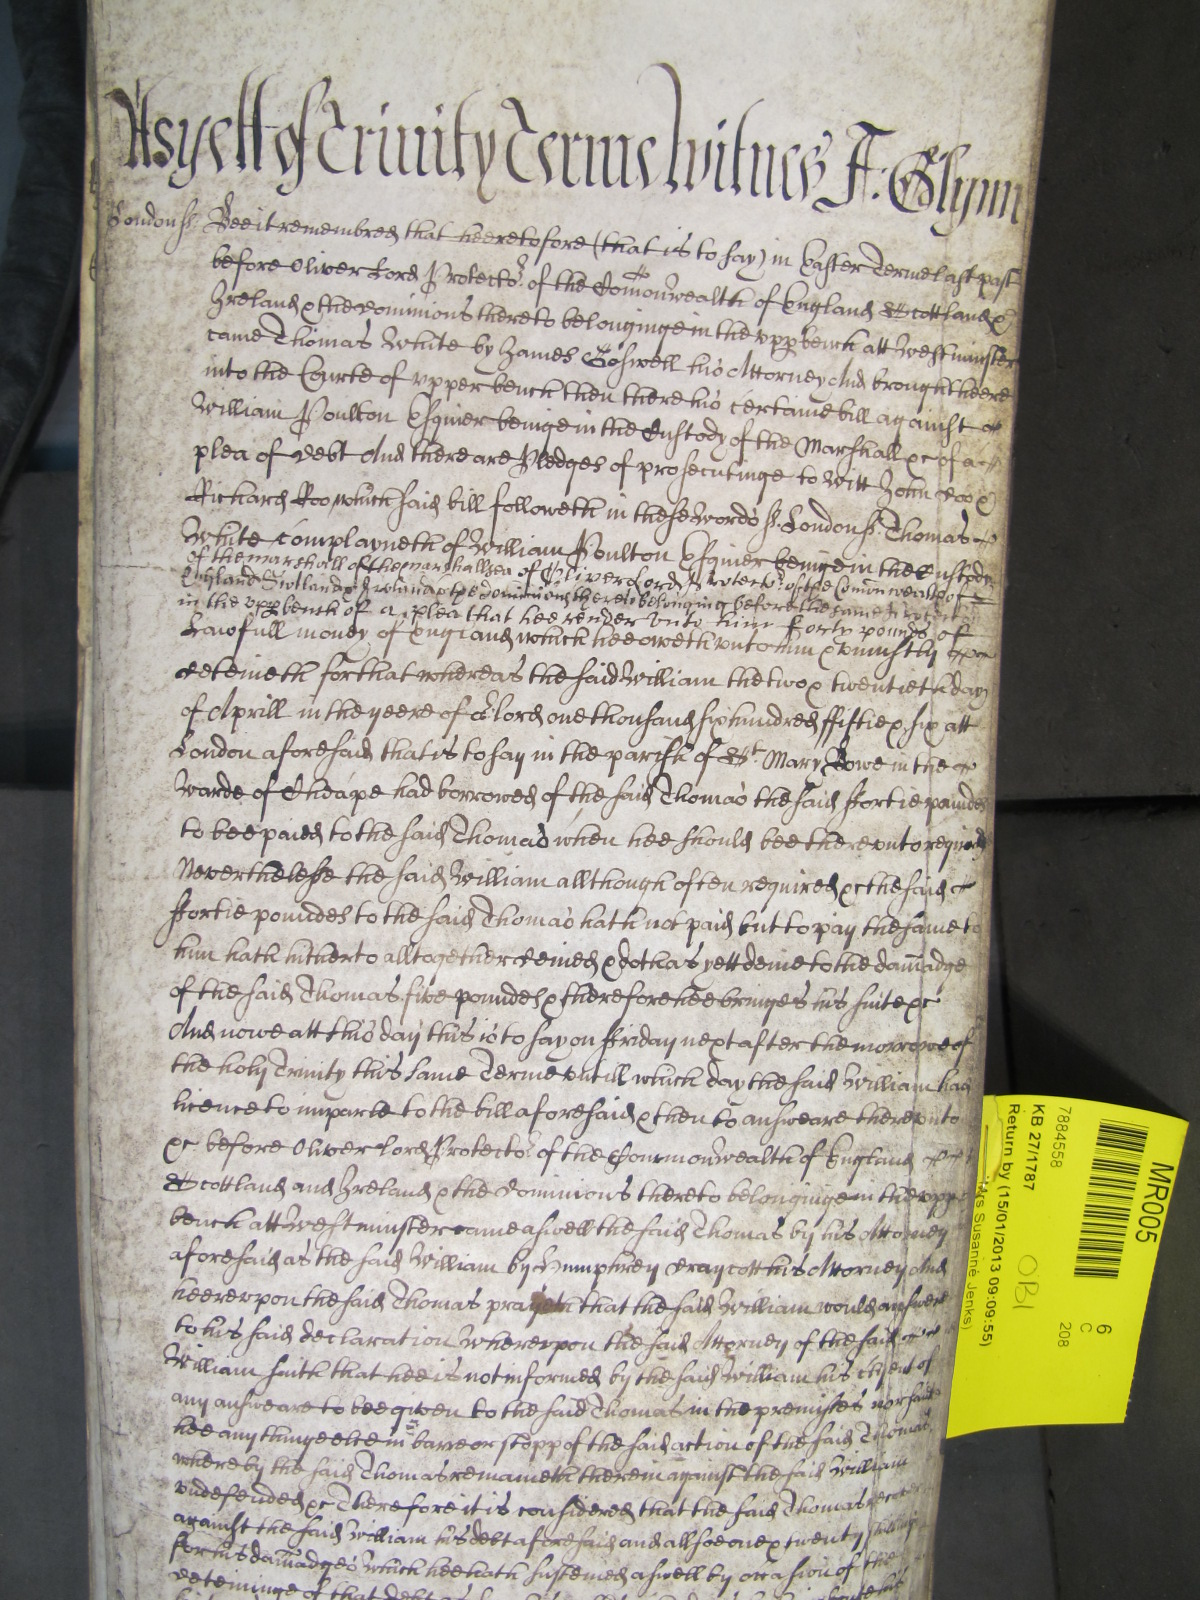 As yett of Trinity Terme Witnes J: Glynn
London ss. Bee it remembred that heeretofore (that is to say) in Easter Terme last past
before Oliver Lord Protector of the Comonwealth of England Scottland &
Ireland & the dominions thereto belonginge in the upp bench att Westminster
came Thomas White by James Goswell his Attorney And brought heere
into the Courte of upper bench then there his certaine bill against
William Poulton Esquier beinge in the Custody of the Marshall &c of a
plea of debt And there are Pledges of prosecutinge to witt John Doo &
Richard Roo, which said bill followeth in these words ss. London ss. Thomas
White complayneth of William Poulton Esquier beinge in the Custody
of the marshall of the marshallsea of Oliver Lord Protector of the Comonwealth of
England Scotland & Ireland & the dominions thereto belonging before the same Protector
in the upp bench of a plea that hee render unto him forty pounds of
Lawfull money of England which hee oweth unto him & uniustly
deteineth for that whereas the said William the two & twentieth day
of Aprill in the yeere of or Lord one thousand six hundred ffiftie & six att
London aforesaid that is to say in the parish of St Mary Bowe in the
Warde of Cheape had borrowed of the said Thomas the said ffortie poundes
to bee paied to the said Thomas when hee should bee thereunto required
Neverthelesse the said William allthough often required &c the said
ffortie poundes to the said Thomas hath not paid but to pay the same to
him hath hitherto alltogether denied & doth as yett denie to the damadge
of the said Thomas five poundes & therefore hee bringes his suite &c
And nowe att this day this is to say on ffriday next after the morrowe of
the holy Trinity this same Terme untill which day the said William had
licence to imparle to the bill aforesaid & then to answeare thereunto
&c before Oliver Lord Protector of the Commonwealth of England
Scottland and Ireland & the dominions thereto belonginge in the upp
bench att Westminster came aswell the said Thomas by his Attorney
aforesaid as the said William by Humphrey Draycott his Attorney And
heereupon the said Thomas prayeth that the said William would answere
to his said declaration Whereupon the said Attorney of the said
William saith that hee is not informed by the said William his Clyent of
any answeare to bee given to the said Thomas in the premisses nor saith
hee any thinge else in barre or stopp of the said action of the said Thomas
whereby the said Thomas remaineth therein against the said William
undefended &c Therefore it is considered that the said Thomas recover
against the said William his debt aforesaid and allsoe one & twenty shillings
for his damadges which hee hath susteined aswell by occasion of the
deteininge of that debt as
MR005
6
C
208
7884558
KB 27/1787
OBI
Return by (15/01/2013 09:09:55)
Mrs Susanne Jenks)